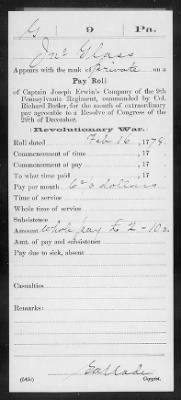 G | 9 | Pa.
Jno Glass
Appears with the rank of Private on a
Pay Roll
of Captain Joseph Erwin's Company of the 9th
Pennsylvania Regiment, commanded by Col.
Richard Butler, for the month of extraordinary
pay agreeable to a Resolve of Congress of the
29th of December.
Revolutionary War.
Roll dated Feb 16, 1779.
Commencement of time , 17
Commencement of pay , 17
To what time paid , 17
Pay per month 6 2/3 dollars
Time of service
Whole time of service
Subsistence
Amount whole pay £ 2-10s.
Amt. of pay and subsistence
Pay due to sick, absent
Casualties
Remarks:
Copyist.
(545)